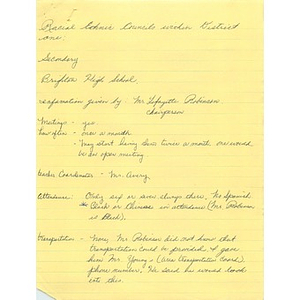 Racial Ethnic Councils within District
one:
Secondary
Brighton High School,
information given by: Mr Lafayette Robinson
chairperson
Meetings - yes
how often - once a month
- may start having them twice a month one would
be an open meeting
teacher Coordinator - Mr. Avery,
Attendance - Only six or seven always there, No Spanish
Black or Chinese in attendance (Mr Robinson
is Black).
transportation - None, Mr Robinson did not know that
transportation could be provided, I gave
him Mr. Young's (Area Transportation Coord.)
phone number, He said he would look
into this.